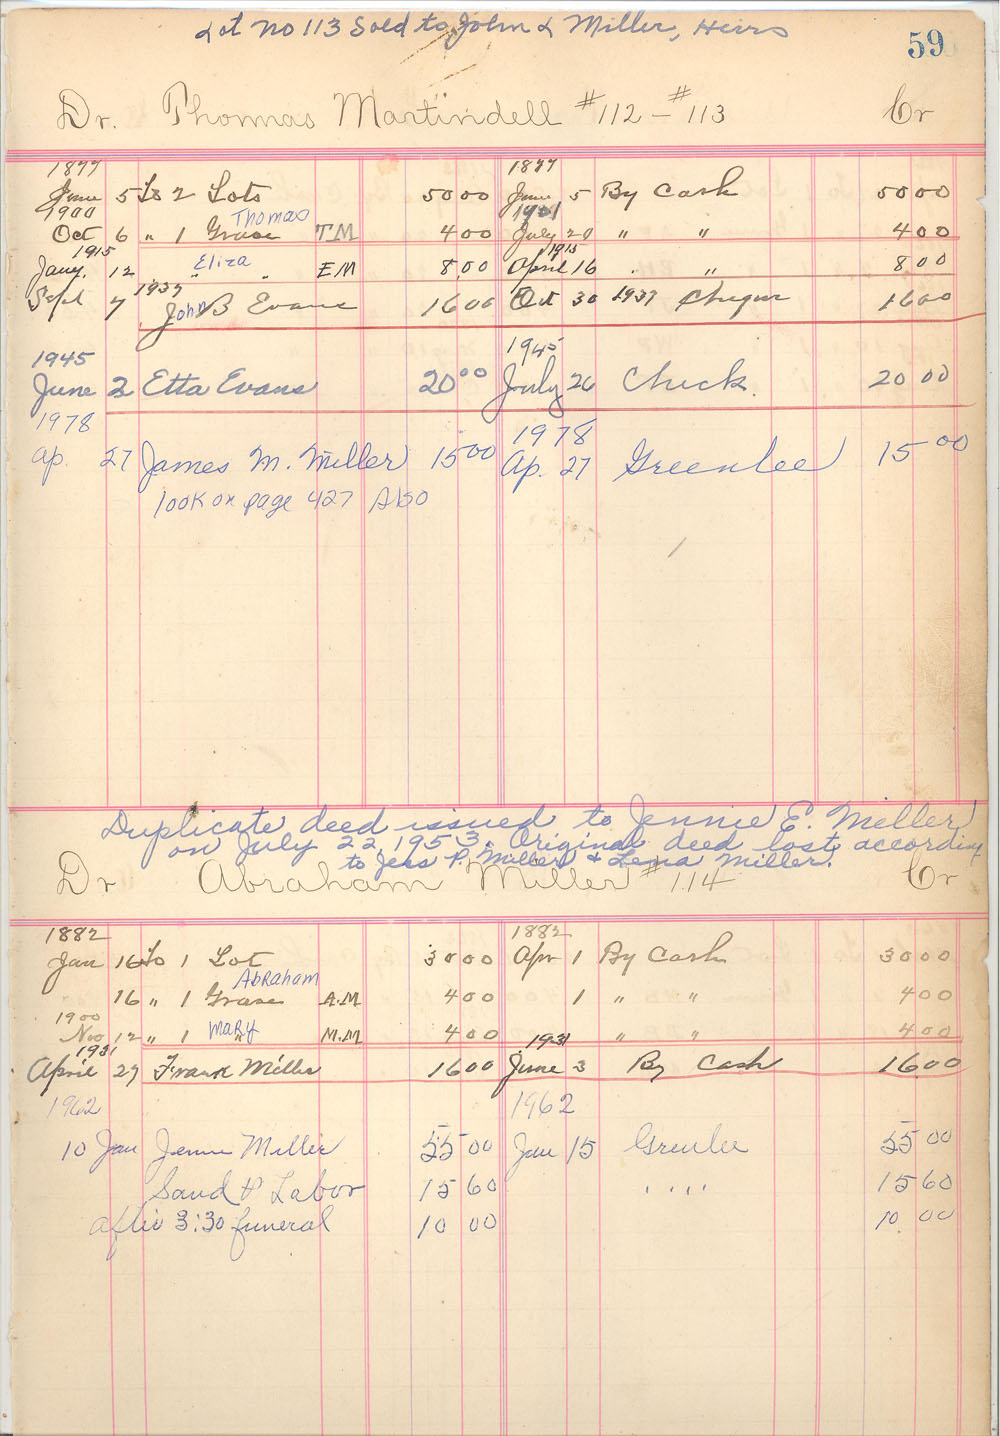 Lot No 113 Sold to John L Miller, Heirs
59
Dr. Thommas Martindell #112 - #113 Cr
1877 1877
June 5 To 2 Lots 50 00 June 5 By Cash 50 00
1900 Thomas 1901
Oct 6 " 1 Grave T M 4 00 July 20 " " 4 00
1915 Eliza 1915
Jany. 12 " " E M 8,00 April 16 . " 8 00
Sept 7 1937 John B Evans 16 00 Oct 30 1937 Cheque 16 00
1945 1945
June 2 Etta Evans 20 00 July 26 Check. 20 00
1978 1978
Ap. 27 James M. Miller 15 00 Ap. 27 Greenlee 15 00
look on page 427 Also
Duplicate deed issued to Jennie E. Miller
on July 22, 1953. Original deed lost according
to Jess P. Miller & Lena Miller.
Dr Abraham Miller #114 Cr
1882 1882
Jan 16 To 1 Lot 30 00 Apr 1 By Cash 30 00
Abraham
16 " 1 Grave A.M 4 00 1 " " 4 00
1900 Mary
Nov 12 " 1 " M.M 4 00 " " 4 00
1931 1931
April 27 Frank Miller 16 00 June 3 By Cash 16 00
1962 1962
10 Jan Jennie Miller 55 00 Jan 15 Greenlee 55 00
Sand & Labor 15 60 " " 15 60
after 3:30 funeral 10 00 10 00